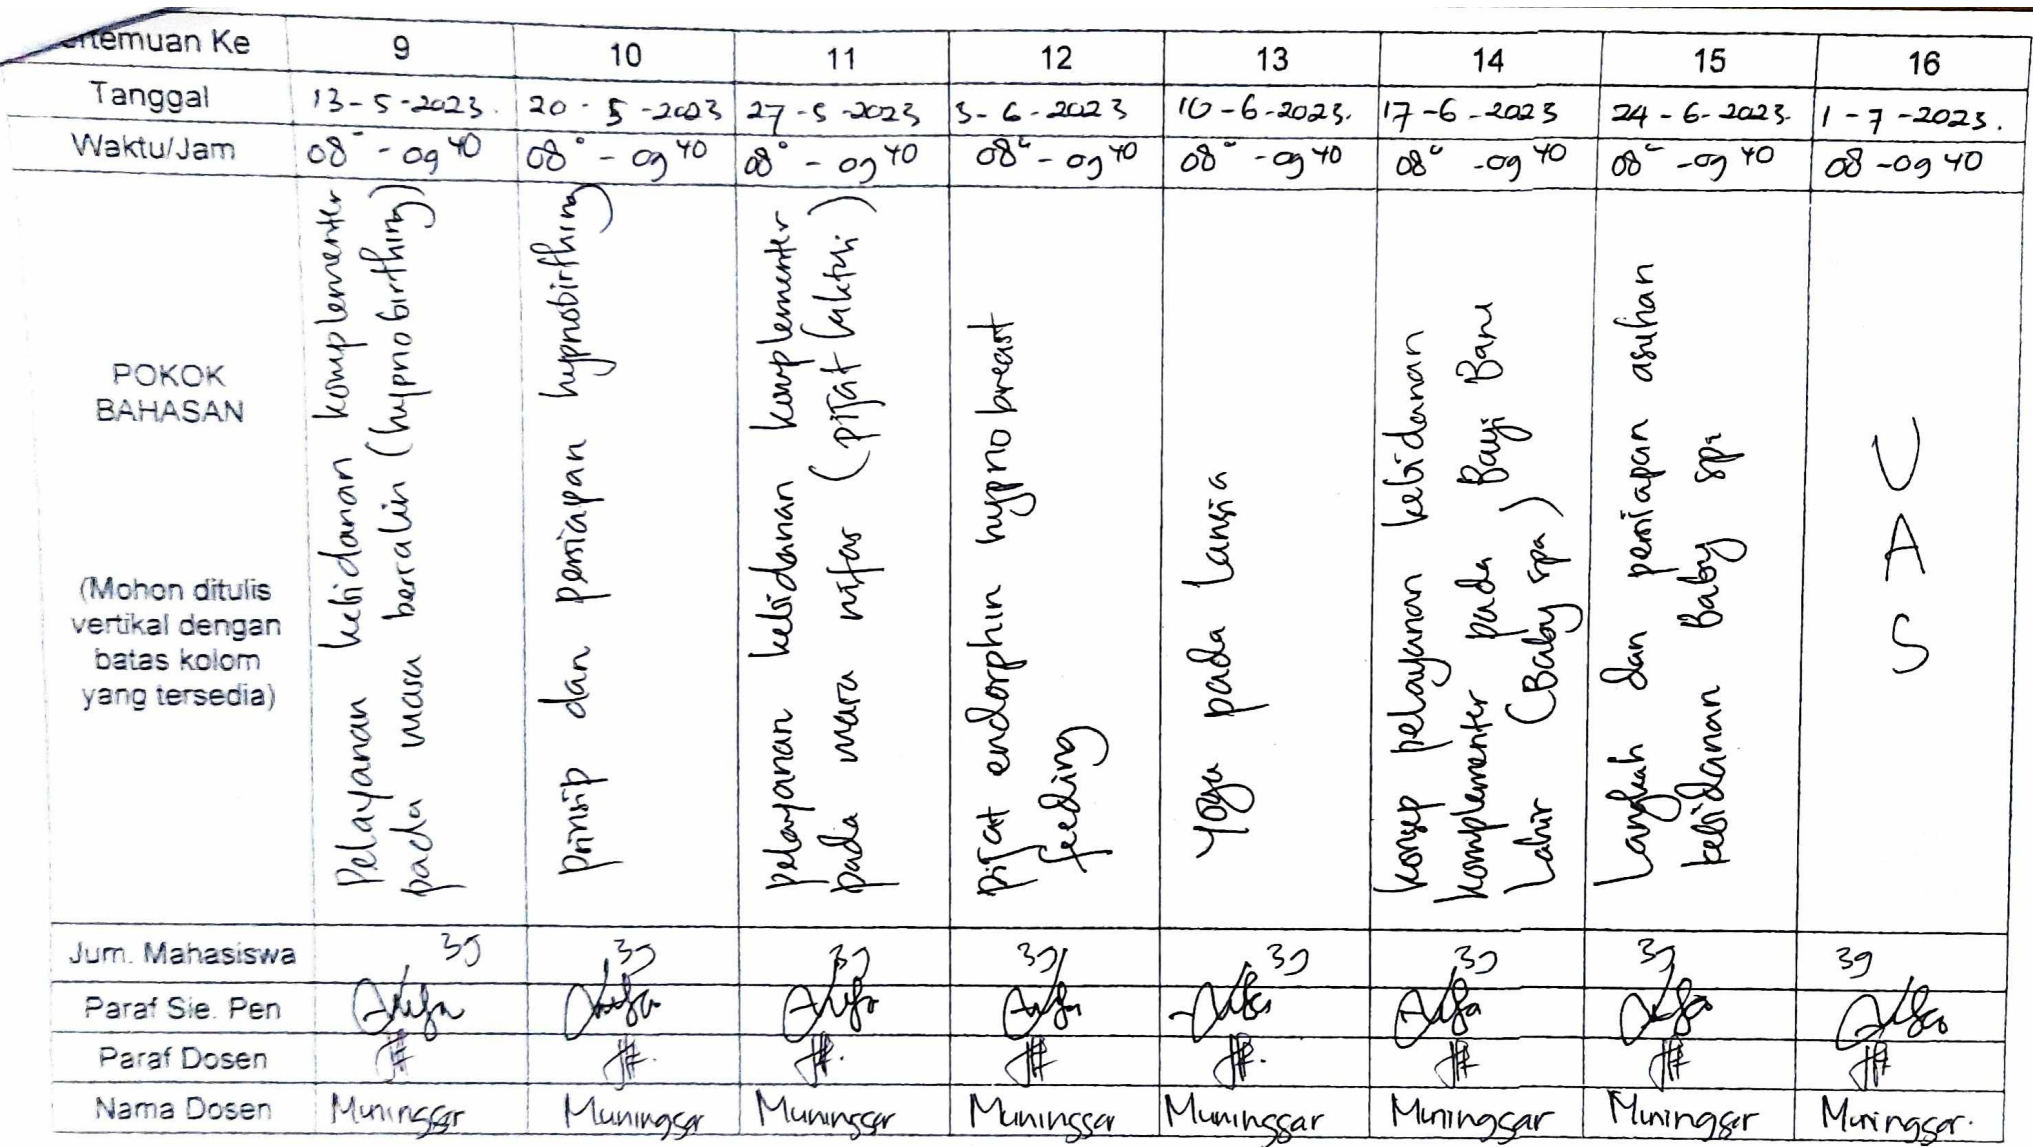 ertemuan Ke 9 10 11 12 13 14 15 16
Tanggal 13-5-2023. 20-5-2023 27-5-2023 3-6-2023 10-6-2023. 17-6-2023 24-6-2023. 1-7-2023.
Waktu/Jam 08° - 09 40 08° - 09 40 08° - 09 40 08° - 09 40 08° - 09 40 08° - 09 40 08° - 09 40 08 - 09 40
POKOK
BAHASAN
(Mohon ditulis
vertikal dengan
batas kolom
yang tersedia)
Pelayanan kebidanan komplementer
pada masa bersalin (hypnobirthing)
Prinsip dan persiapan hypnobirthing
pelayanan kebidanan komplementer
pada masa nifas (pijat laktasi)
pijat endorphin hypnobreast
feeding
Yoga pada Lansia
konsep pelayanan kebidanan
komplementer pada Bayi Baru
Lahir (Baby spa)
Langkah dan persiapan asuhan
kebidanan Baby spa
U
A
S
Jum. Mahasiswa 39 39 39 39 39 39 39 39
Paraf Sie. Pen
Paraf Dosen
Nama Dosen Muningsar Muningsar Muningsar Muningsar Muningsar Muningsar Muningsar Muningsar.